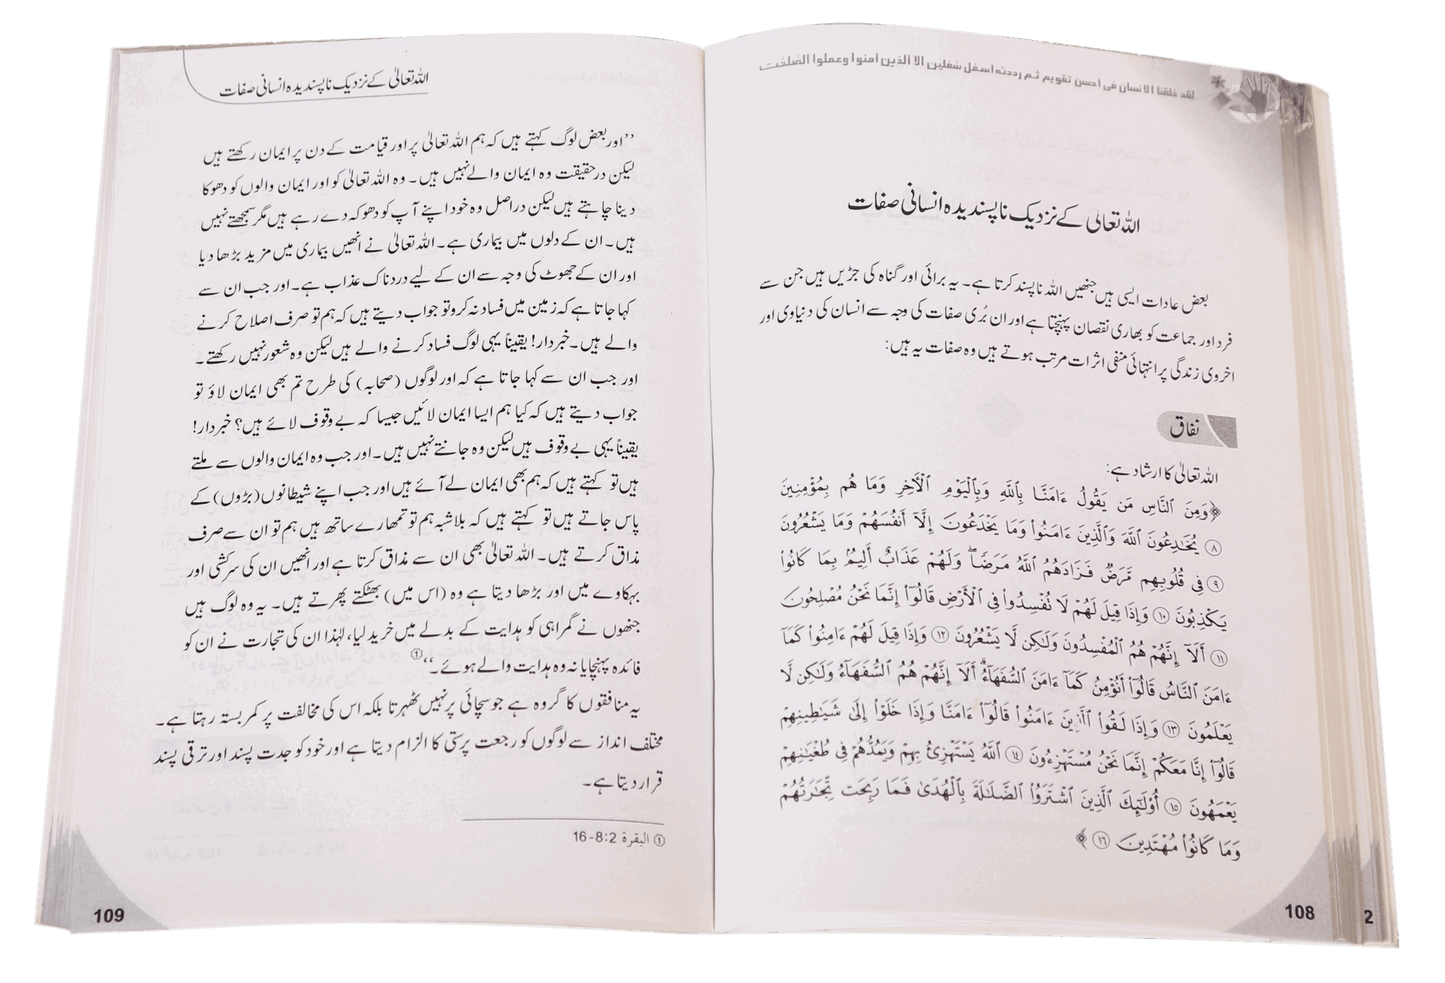 لقد خلقنا الانسان فی احسن تقویم ثم رددنه اسفل سفلین الا الذین امنوا وعملوا الصلحت
اللہ تعالیٰ کے نزدیک ناپسندیدہ انسانی صفات
بعض عادات ایسی ہیں جنھیں اللہ ناپسند کرتا ہے۔ یہ برائی اور گناہ کی جڑیں ہیں جن سے
فرد اور جماعت کو بھاری نقصان پہنچتا ہے اور ان بُری صفات کی وجہ سے انسان کی دنیاوی اور
اخروی زندگی پر انتہائی منفی اثرات مرتب ہوتے ہیں وہ صفات یہ ہیں:
نفاق
اللہ تعالیٰ کا ارشاد ہے:
﴿وَمِنَ ٱلنَّاسِ مَن يَقُولُ ءَامَنَّا بِٱللَّهِ وَبِٱلْيَوْمِ ٱلْآخِرِ وَمَا هُم بِمُؤْمِنِينَ
٨ يُخَٰدِعُونَ ٱللَّهَ وَٱلَّذِينَ ءَامَنُوا۟ وَمَا يَخْدَعُونَ إِلَّآ أَنفُسَهُمْ وَمَا يَشْعُرُونَ
٩ فِى قُلُوبِهِم مَّرَضٌ فَزَادَهُمُ ٱللَّهُ مَرَضًا ۖ وَلَهُمْ عَذَابٌ أَلِيمٌۢ بِمَا كَانُوا۟
يَكْذِبُونَ ١٠ وَإِذَا قِيلَ لَهُمْ لَا تُفْسِدُوا۟ فِى ٱلْأَرْضِ قَالُوٓا۟ إِنَّمَا نَحْنُ مُصْلِحُونَ
١١ أَلَآ إِنَّهُمْ هُمُ ٱلْمُفْسِدُونَ وَلَٰكِن لَّا يَشْعُرُونَ ١٢ وَإِذَا قِيلَ لَهُمْ ءَامِنُوا۟ كَمَآ
ءَامَنَ ٱلنَّاسُ قَالُوٓا۟ أَنُؤْمِنُ كَمَآ ءَامَنَ ٱلسُّفَهَآءُ ۗ أَلَآ إِنَّهُمْ هُمُ ٱلسُّفَهَآءُ وَلَٰكِن لَّا
يَعْلَمُونَ ١٣ وَإِذَا لَقُوا۟ ٱلَّذِينَ ءَامَنُوا۟ قَالُوٓا۟ ءَامَنَّا وَإِذَا خَلَوْا۟ إِلَىٰ شَيَٰطِينِهِمْ
قَالُوٓا۟ إِنَّا مَعَكُمْ إِنَّمَا نَحْنُ مُسْتَهْزِءُونَ ١٤ ٱللَّهُ يَسْتَهْزِئُ بِهِمْ وَيَمُدُّهُمْ فِى طُغْيَٰنِهِمْ
يَعْمَهُونَ ١٥ أُو۟لَٰٓئِكَ ٱلَّذِينَ ٱشْتَرَوُا۟ ٱلضَّلَٰلَةَ بِٱلْهُدَىٰ فَمَا رَبِحَت تِّجَٰرَتُهُمْ
وَمَا كَانُوا۟ مُهْتَدِينَ ١٦﴾
108
2
اللہ تعالیٰ کے نزدیک ناپسندیدہ انسانی صفات
’’اور بعض لوگ کہتے ہیں کہ ہم اللہ تعالیٰ پر اور قیامت کے دن پر ایمان رکھتے ہیں
لیکن درحقیقت وہ ایمان والے نہیں ہیں۔ وہ اللہ تعالیٰ کو اور ایمان والوں کو دھوکا
دینا چاہتے ہیں لیکن دراصل وہ خود اپنے آپ کو دھوکہ دے رہے ہیں مگر سمجھتے نہیں
ہیں۔ ان کے دلوں میں بیماری ہے۔ اللہ تعالیٰ نے انھیں بیماری میں مزید بڑھا دیا
اور ان کے جھوٹ کی وجہ سے ان کے لیے دردناک عذاب ہے۔ اور جب ان سے
کہا جاتا ہے کہ زمین میں فساد نہ کرو تو جواب دیتے ہیں کہ ہم تو صرف اصلاح کرنے
والے ہیں۔ خبردار! یقیناً یہی لوگ فساد کرنے والے ہیں لیکن وہ شعور نہیں رکھتے۔
اور جب ان سے کہا جاتا ہے کہ اور لوگوں (صحابہ) کی طرح تم بھی ایمان لاؤ تو
جواب دیتے ہیں کہ کیا ہم ایسا ایمان لائیں جیسا کہ بے وقوف لائے ہیں؟ خبردار!
یقیناً یہی بے وقوف ہیں لیکن وہ جانتے نہیں ہیں۔ اور جب وہ ایمان والوں سے ملتے
ہیں تو کہتے ہیں کہ ہم بھی ایمان لے آئے ہیں اور جب اپنے شیطانوں (بڑوں) کے
پاس جاتے ہیں تو کہتے ہیں کہ بلاشبہ ہم تو تمھارے ساتھ ہیں ہم تو ان سے صرف
مذاق کرتے ہیں۔ اللہ تعالیٰ بھی ان سے مذاق کرتا ہے اور انھیں ان کی سرکشی اور
بہکاوے میں اور بڑھا دیتا ہے وہ (اس میں) بھٹکتے پھرتے ہیں۔ یہ وہ لوگ ہیں
جنھوں نے گمراہی کو ہدایت کے بدلے میں خرید لیا، لہٰذا ان کی تجارت نے ان کو
فائدہ پہنچایا نہ وہ ہدایت والے ہوئے۔‘‘①
یہ منافقوں کا گروہ ہے جو سچائی پر نہیں ٹھہرتا بلکہ اس کی مخالفت پر کمر بستہ رہتا ہے۔
مختلف انداز سے لوگوں کو رجعت پرستی کا الزام دیتا ہے اور خود کو جدت پسند اور ترقی پسند
قرار دیتا ہے۔
① البقرة 2:8-16
109